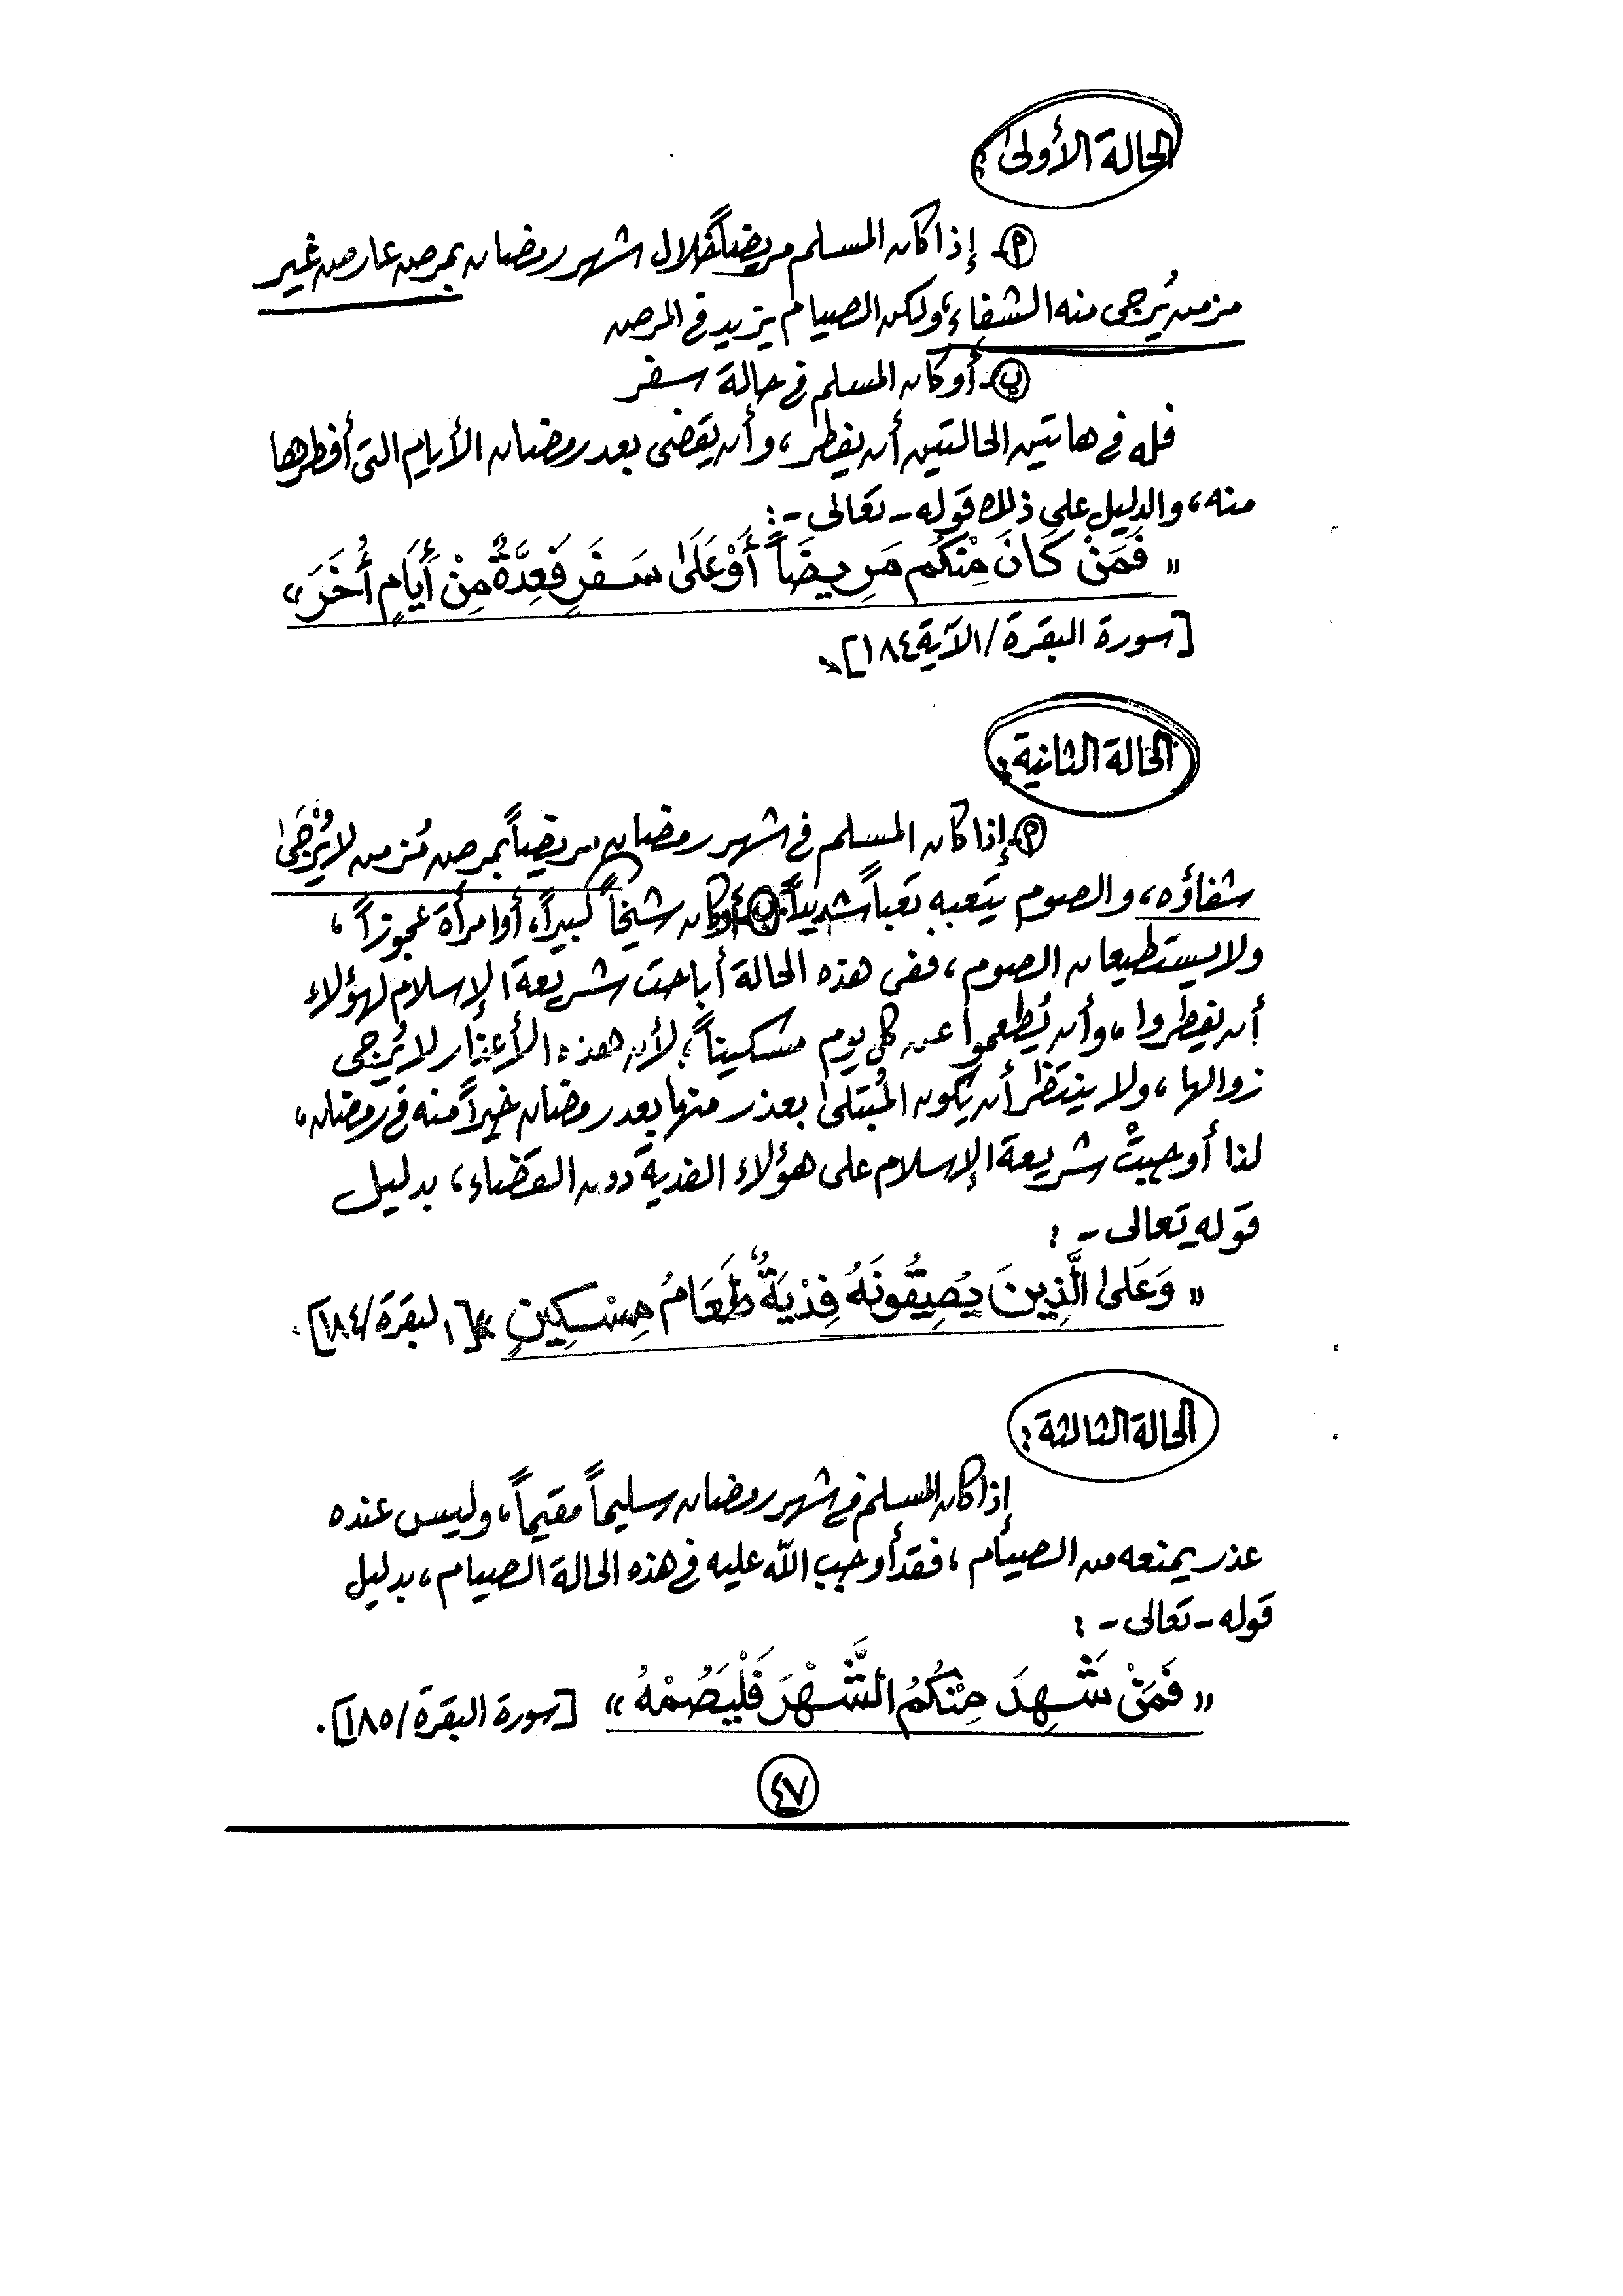 الحالة الأولى:
(أ)- إذا كان المسلم مريضاً خلال شهر رمضان بمرض عارض غير
مزمن يُرجى منه الشفاء، ولكن الصيام يزيد في المرض
(ب)- أو كان المسلم في حالة سفر
فله في هاتين الحالتين أن يفطر، وأن يقضى بعد رمضان الأيام التى أفطرها
منه، والدليل على ذلك قوله - تعالى -:
« فَمَنْ كَانَ مِنْكُم مَرِيضَاً أَوْ عَلَىٰ سَفَرٍ فَعِدَّةٌ مِنْ أَيَّامٍ أُخَرَ»
[سورة البقرة/الآية ١٨٤].
الحالة الثانية:
(أ)- إذا كان المسلم في شهر رمضان مريضاً بمرض مُزمن لا يُرْجَىٰ
شفاؤه، والصوم يتعبه تعباً شديداً (ب) أو كان شيخاً كبيراً، أو امرأة عجوزاً،
ولا يستطيعان الصوم، ففى هذه الحالة أباحت شريعة الإسلام لهؤلاء
أن يفطروا، وأن يُطعموا عن كل يوم مسكيناً؛ لأن هذه الأعذار لا يُرجى
زوالها، ولا ينتظر أن يكون المُبتلىٰ بعذر منها بعد رمضان خيراً منه في رمضان،
لذا أوجبتْ شريعة الإسلام على هؤلاء الفدية دون القضاء، بدليل
قوله تعالى - :
« وَعَلَىٰ الَّذِينَ يُطِيقُونَهُ فِدْيَةٌ طَعَامُ مِسْكِينٍ » [البقرة/١٨٤].
الحالة الثالثة:
إذا كان المسلم في شهر رمضان سليماً مقيماً، وليس عنده
عذر يمنعه من الصيام، فقد أوجب الله عليه في هذه الحالة الصيام، بدليل
قوله - تعالى - :
« فَمَنْ شَهِدَ مِنْكُمُ الشَّهْرَ فَلْيَصُمْهُ » [سورة البقرة/١٨٥].
٤٧